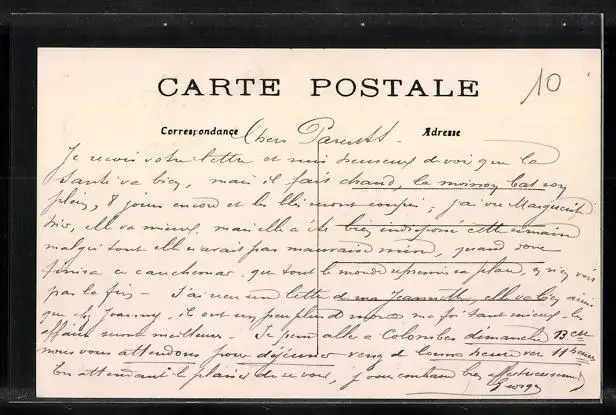 CARTE POSTALE
10
Correspondance Chers Parents. Adresse
Je reçois votre lettre et suis heureux de voir que la
Santé va bien, mais il fait chaud, la moisson bat son
plein, 8 jours encore et les blés seront coupés, j'ai vu Marguerite
, elle va mieux, mais elle a été bien indisposée cette semaine
malgré tout elle n'avait pas mauvaise mine, quand donc
finira ce cauchemar, que tout le monde reprenne sa place,
pas la fin - J'ai reçu une lettre de ma Jeannette, elle va bien ainsi
que chez Joanny, ils ont un peu plus de ma foi tant mieux - les
affaires sont meilleures - Je pense aller à Colombes dimanche 13 ct
nous vous attendons pour déjeuner venez de bonne heure vers 11 heures
En attendant le plaisir de se voir, je vous embrasse bien affectueusement
Georges